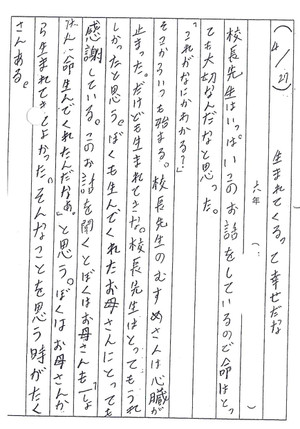 (4/27)
生まれてくるって幸せだな
六年 ( )
校長先生はいっぱいこのお話をしているので命はとっ
ても大切なんだなと思った。
「これがなにかわかる？」
そこからいつも始まる。校長先生のむすめさんは心臓が
止まった。だけども生まれてきた。校長先生はとってもうれ
しかったと思う。ぼくも生んでくれたお母さんにとっても
感謝している。このお話を聞くとぼくはお母さんも「しょ
けんに命生んでくれたんだなぁ」と思う。ぼくはお母さんか
ら生まれてきてよかった。そんなことを思う時がたく
さんある。